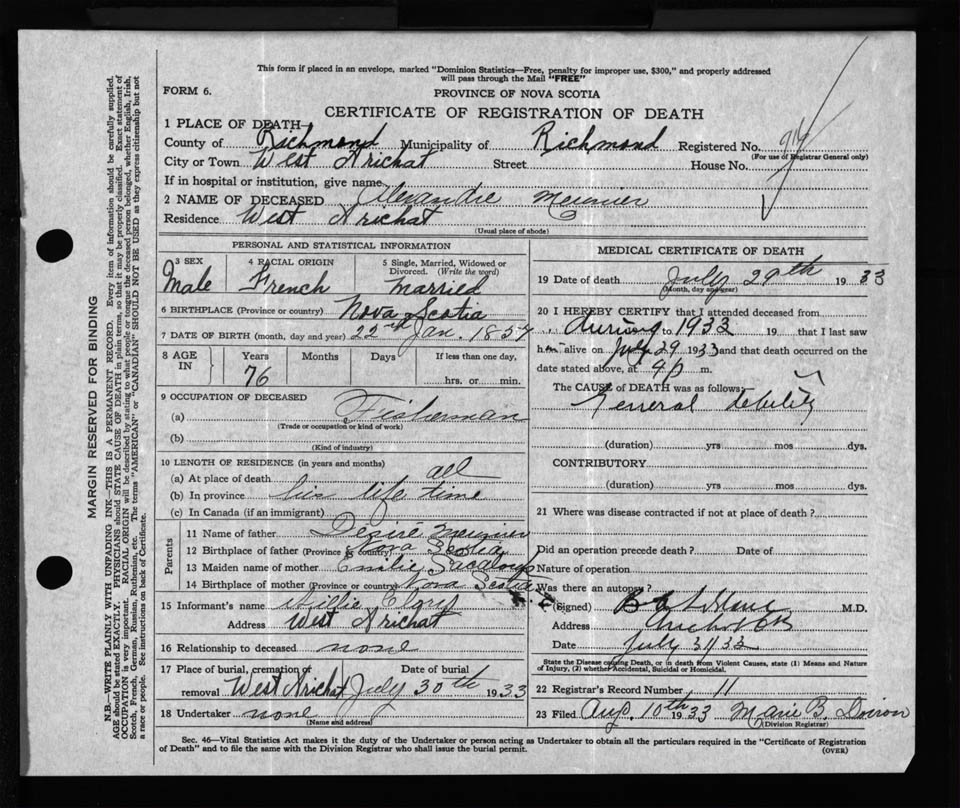 This form if placed in an envelope, marked "Dominion Statistics—Free, penalty for improper use, $300," and properly addressed
will pass through the Mail "FREE"
FORM 6.
PROVINCE OF NOVA SCOTIA
CERTIFICATE OF REGISTRATION OF DEATH
1 PLACE OF DEATH—
County of Richmond Municipality of Richmond Registered No.
(For use of Registrar General only)
City or Town West Arichat Street House No.
If in hospital or institution, give name
2 NAME OF DECEASED Alexandre Meunier
Residence West Arichat
(Usual place of abode)
PERSONAL AND STATISTICAL INFORMATION
3 SEX Male
4 RACIAL ORIGIN French
5 Single, Married, Widowed or Divorced. (Write the word) Married
6 BIRTHPLACE (Province or country) Nova Scotia
7 DATE OF BIRTH (month, day and year) 22nd Jan. 1857
8 AGE IN Years 76 Months Days If less than one day, hrs. or min.
9 OCCUPATION OF DECEASED
(a) Fisherman
(Trade or occupation or kind of work)
(b)
(Kind of industry)
10 LENGTH OF RESIDENCE (in years and months)
(a) At place of death all
(b) In province his life time
(c) In Canada (if an immigrant)
Parents
11 Name of father Desire Meunier
12 Birthplace of father (Province or country) Nova Scotia
13 Maiden name of mother Emilie
14 Birthplace of mother (Province or country) Nova Scotia
15 Informant's name
Address West Arichat
16 Relationship to deceased none
17 Place of burial, cremation or removal West Arichat Date of burial July 30th 1933
18 Undertaker none
(Name and address)
MEDICAL CERTIFICATE OF DEATH
19 Date of death July 29th 1933
(Month, day and year)
20 I HEREBY CERTIFY that I attended deceased from
during to 1933 19 that I last saw
him alive on July 29 1933 and that death occurred on the
date stated above, at 9 p m.
The CAUSE of DEATH was as follows:
General debility
(duration) yrs mos dys.
CONTRIBUTORY
(duration) yrs mos dys.
21 Where was disease contracted if not at place of death?
Did an operation precede death? Date of
Nature of operation
Was there an autopsy?
(Signed) M.D.
Address
Date July 31/33
State the Disease causing Death, or in death from Violent Causes, state (1) Means and Nature
of Injury, (2) whether Accidental, Suicidal or Homicidal.
22 Registrar's Record Number 11
23 Filed Aug 10th 1933 Marie B. Doiron
(Division Registrar)
Sec. 46—Vital Statistics Act makes it the duty of the Undertaker or person acting as Undertaker to obtain all the particulars required in the "Certificate of Registration
of Death" and to file the same with the Division Registrar who shall issue the burial permit.
(OVER)
MARGIN RESERVED FOR BINDING
N.B.—WRITE PLAINLY WITH UNFADING INK—THIS IS A PERMANENT RECORD. Every item of information should be carefully supplied.
AGE should be stated EXACTLY. PHYSICIANS should STATE CAUSE OF DEATH in plain terms, so that it may be properly classified. Exact statement of
OCCUPATION is very important. RACIAL ORIGIN will be described by stating to what people or tongue the deceased person belonged, whether English, Irish,
Scotch, French, German, Russian, Ruthenian, etc. The terms "AMERICAN" or "CANADIAN" SHOULD NOT BE USED as they express citizenship but not
a race or people. See instructions on back of Certificate.